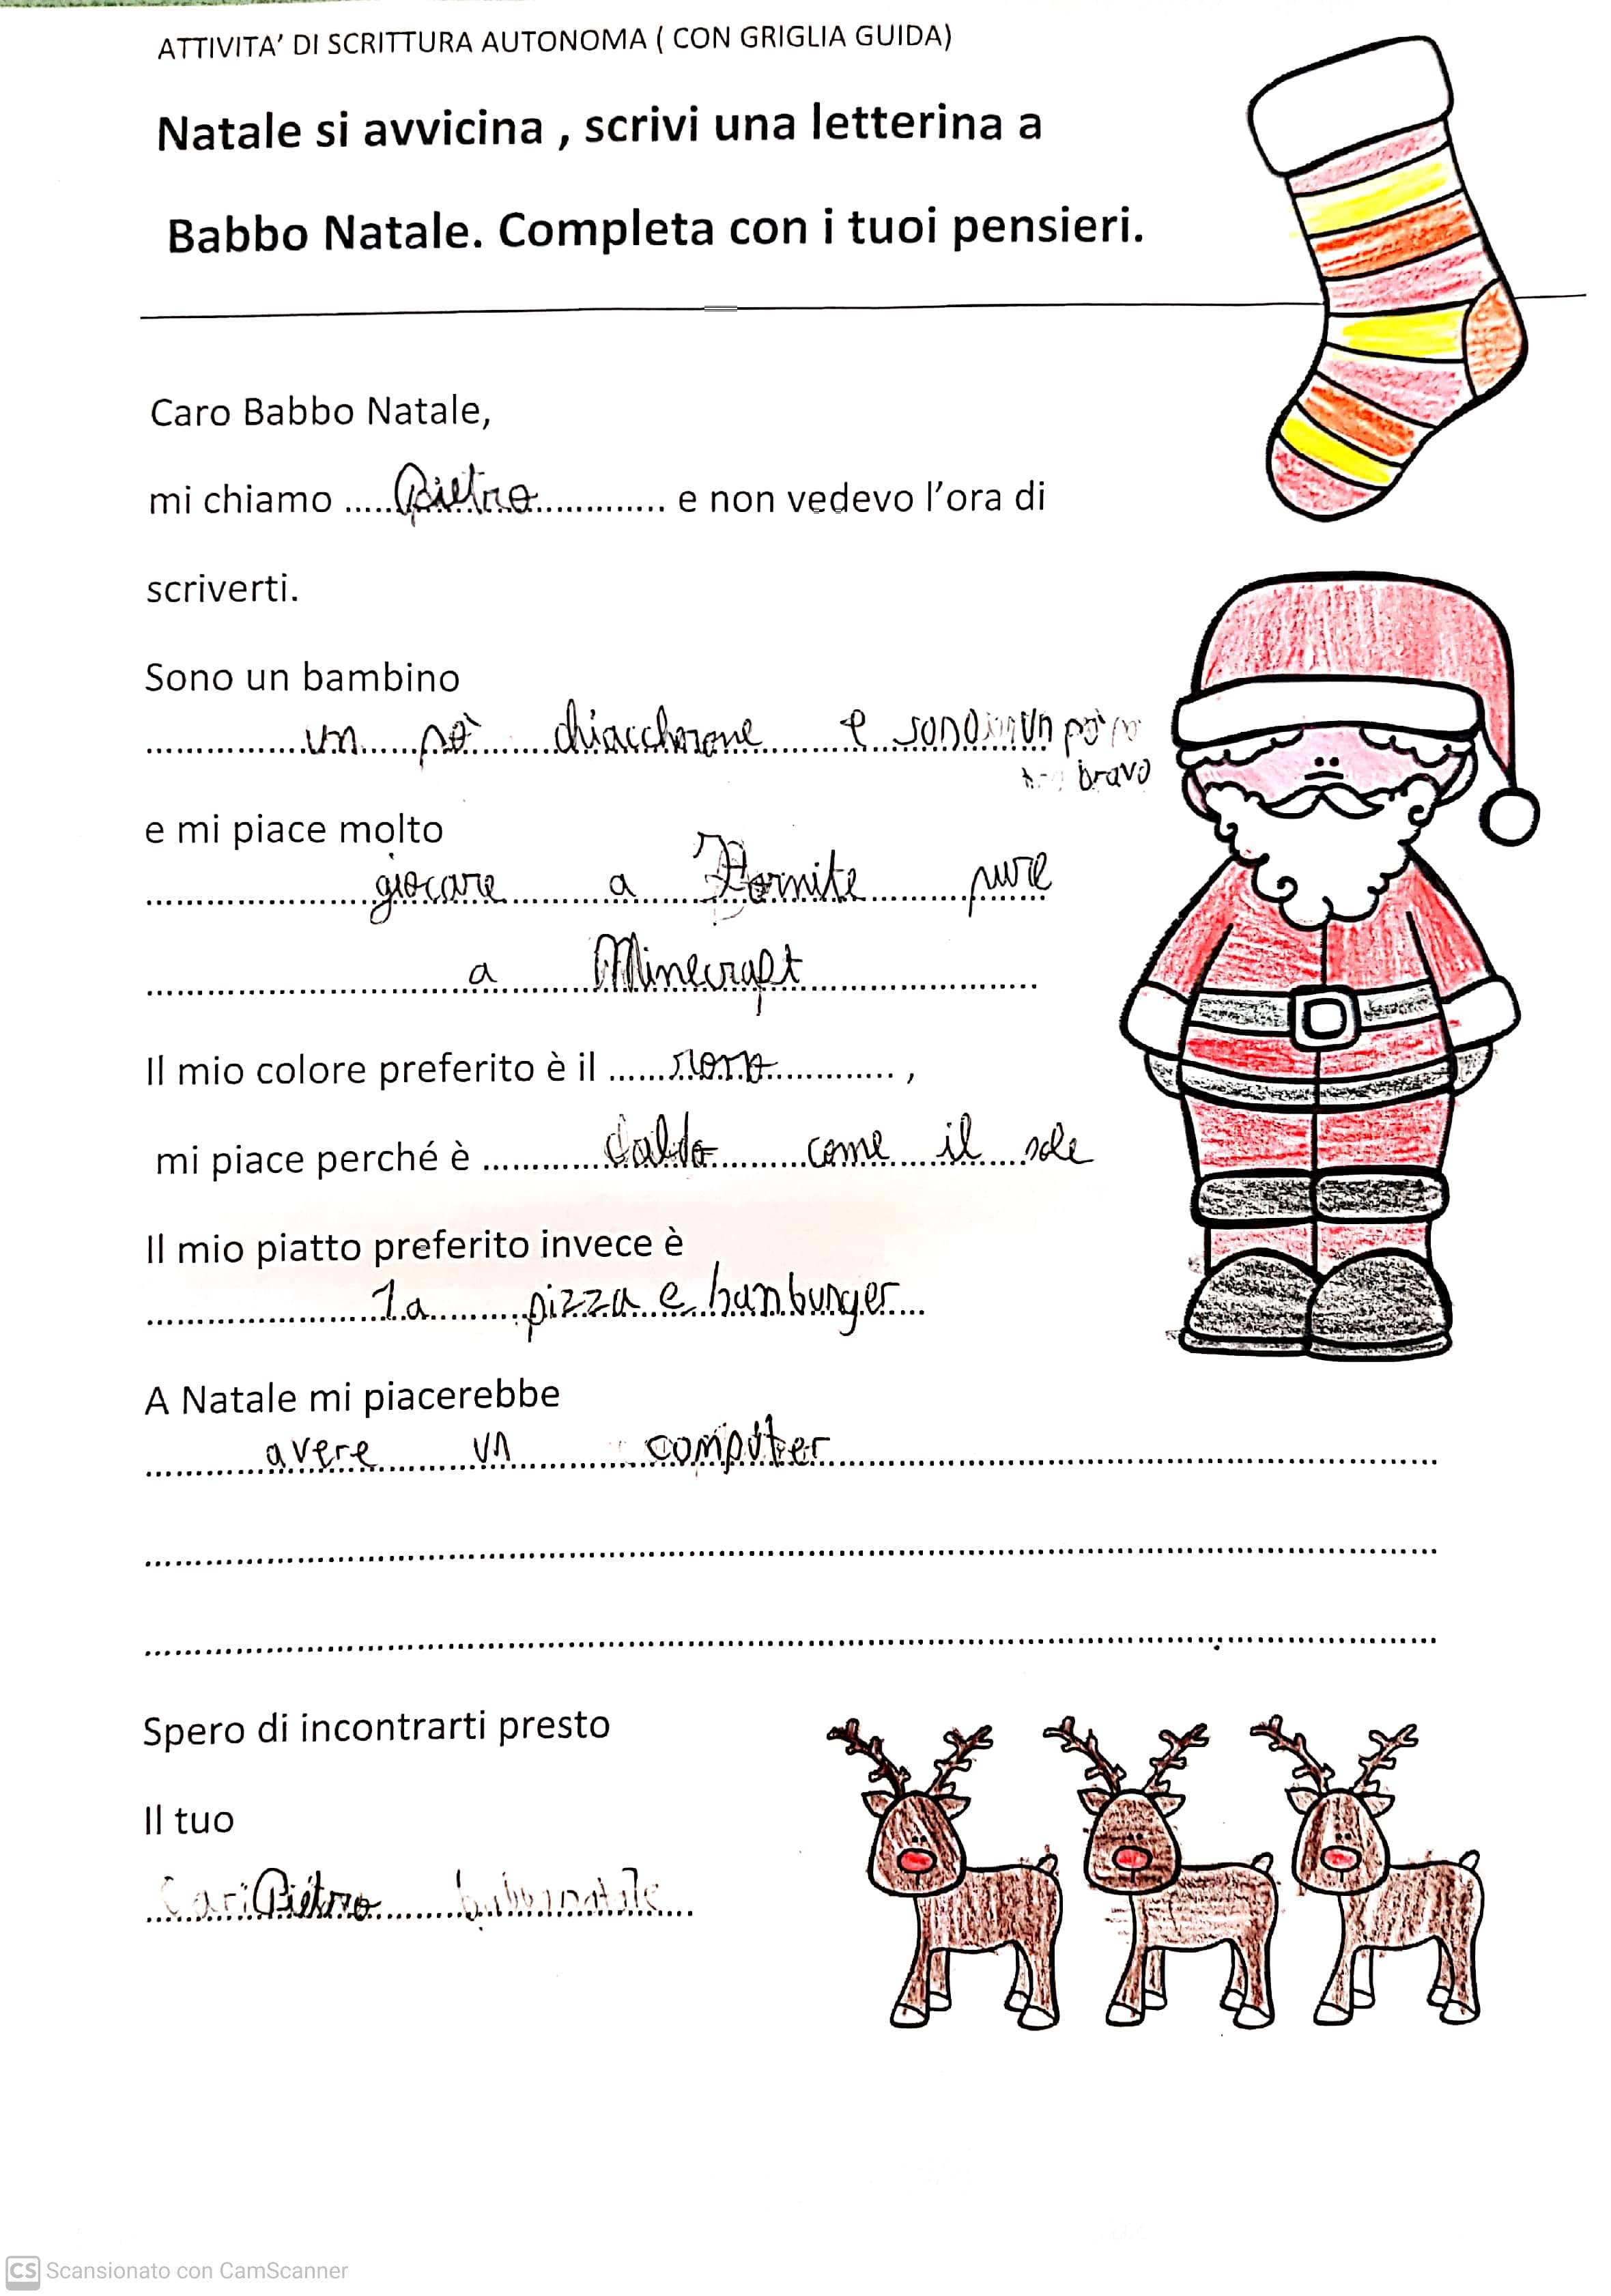 ATTIVITA' DI SCRITTURA AUTONOMA ( CON GRIGLIA GUIDA)
Natale si avvicina , scrivi una letterina a
Babbo Natale. Completa con i tuoi pensieri.
Caro Babbo Natale,
mi chiamo .....Pietro............. e non vedevo l'ora di
scriverti.
Sono un bambino
un pò chiaccherone e sono un pò
bravo
e mi piace molto
giocare a Fornite pure
a Minecraft
Il mio colore preferito è il ............ ,
mi piace perché è ............ caldo come il sole
Il mio piatto preferito invece è
la pizza e hanburger
A Natale mi piacerebbe
avere un computer
Spero di incontrarti presto
Il tuo
Pietro
CS Scansionato con CamScanner